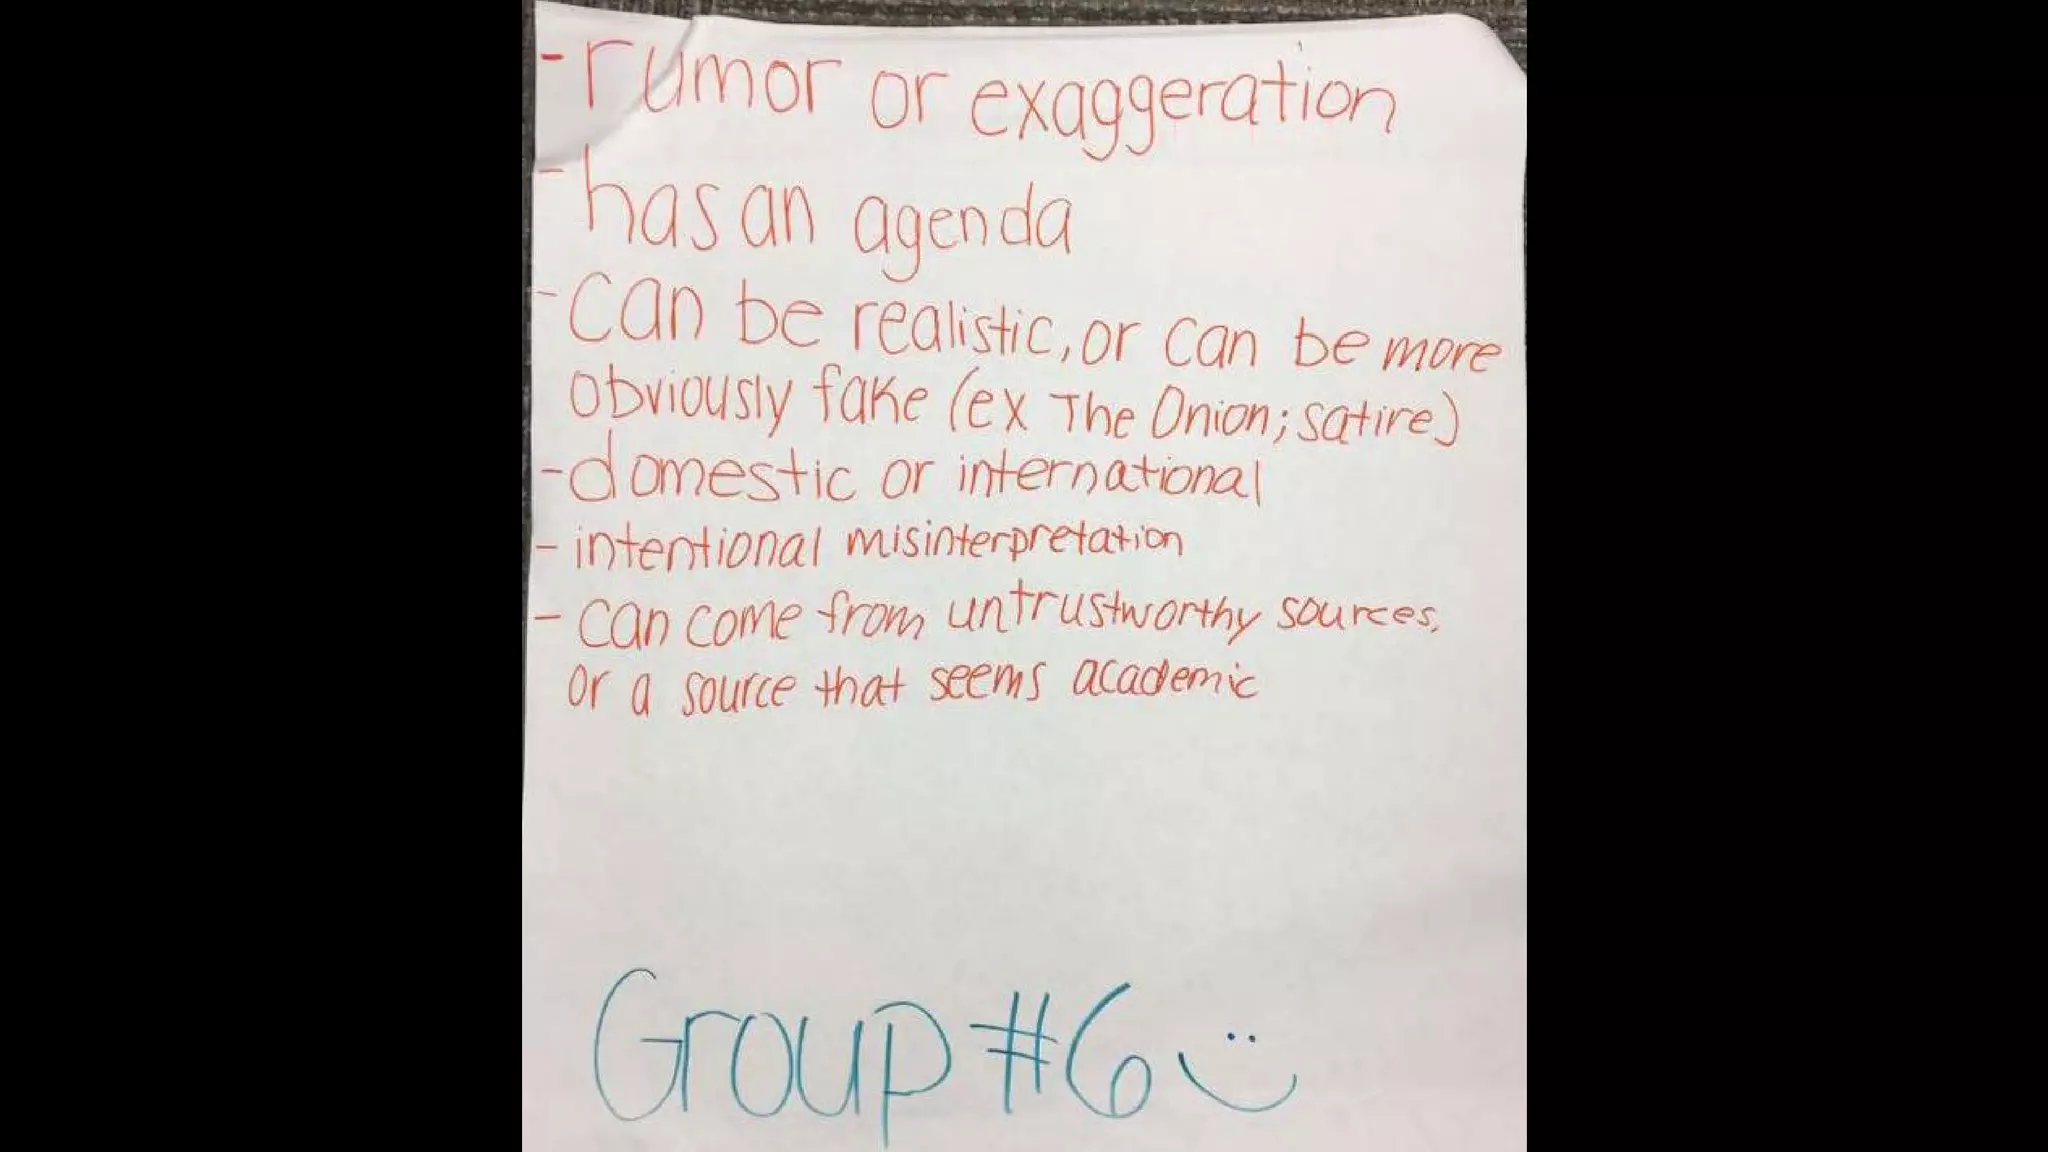 - rumor or exaggeration
- has an agenda
- can be realistic, or can be more
obviously fake (ex The Onion; satire)
- domestic or international
- intentional misinterpretation
- can come from untrustworthy sources,
or a source that seems academic
Group #6